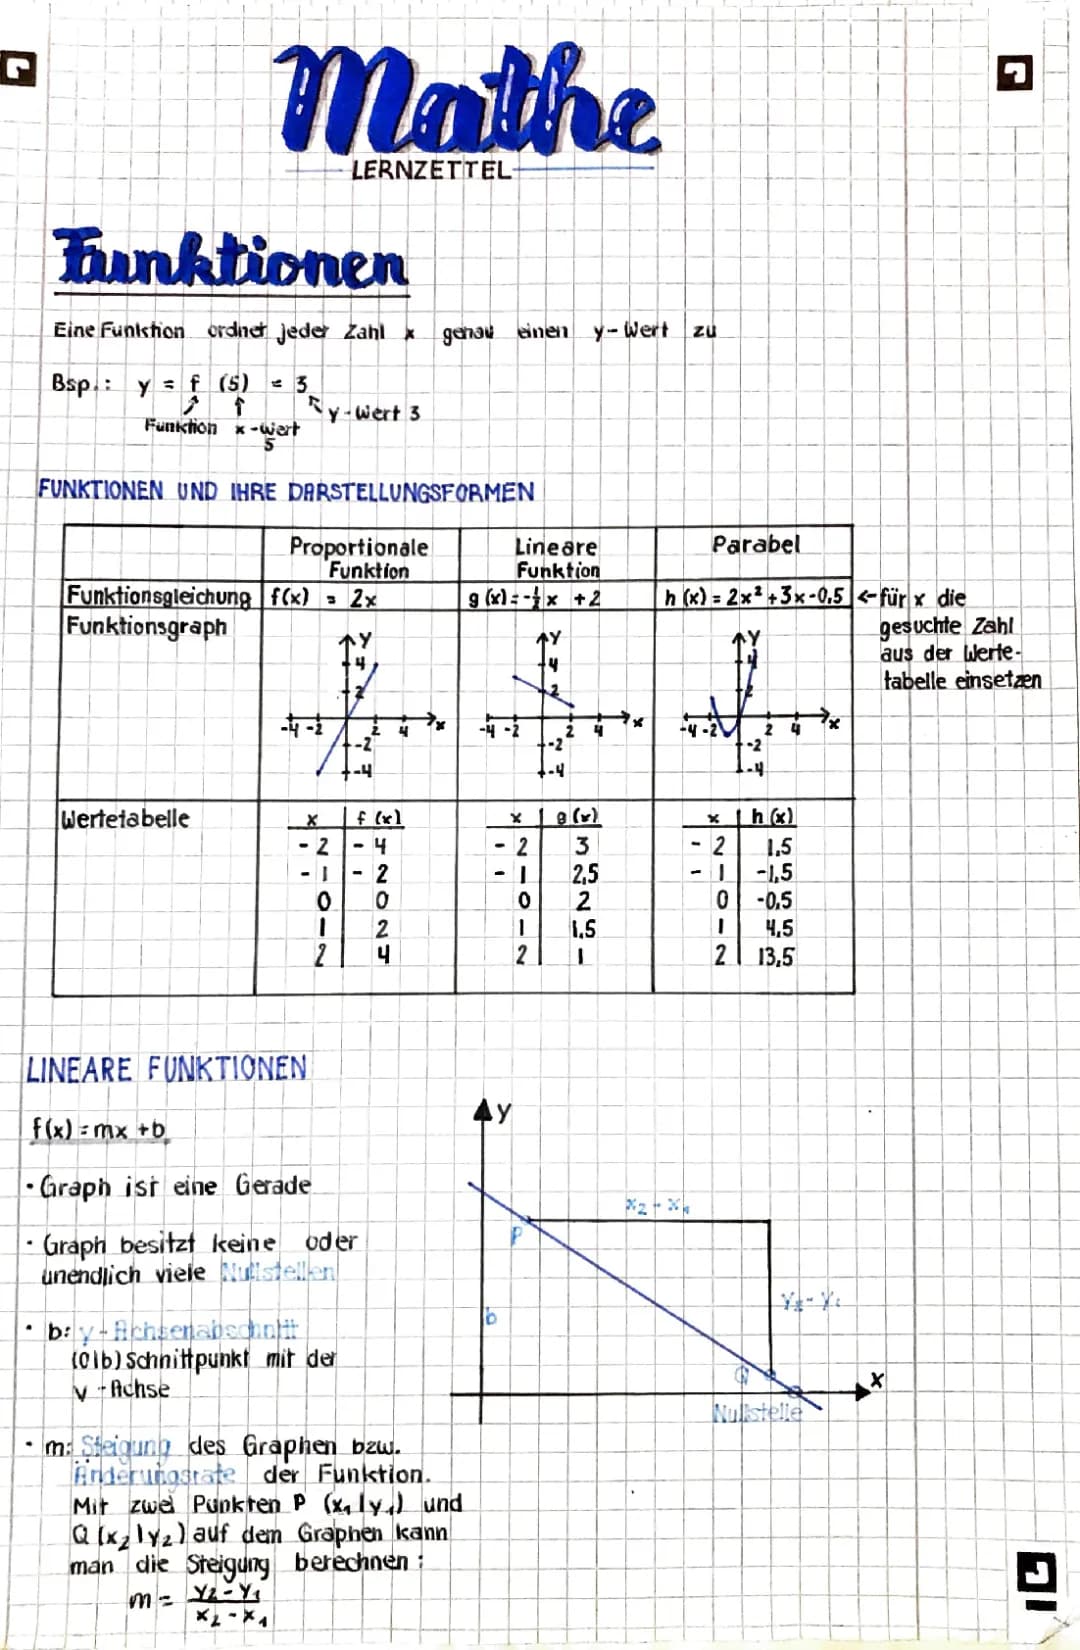 Mathe
LERNZETTEL
Funktionen
Eine Funktion ordnet jeder Zahl x genau einen y-Wert zu
Bsp.: y = f (5) = 3
y-Wert 3
Funktion x-Wert
5
FUNKTIONEN UND IHRE DARSTELLUNGSFORMEN
Proportionale Funktion
Lineare Funktion
Parabel
Funktionsgleichung f(x) = 2x g(x) = -½x +2 h(x) = 2x² +3x-0,5 ← für x die
gesuchte Zahl
aus der Werte-
tabelle einsetzen
Funktionsgraph
y 4 2 -4 -2 2 4 x -2 -4
y 4 2 -4 -2 2 4 x -2 -4
y 4 2 -4 -2 2 4 x -2 -4
Wertetabelle
x f(x) x g(x) x h(x)
-2 -4 -2 3 -2 1,5
-1 -2 -1 2,5 -1 -1,5
0 0 0 2 0 -0,5
1 2 1 1,5 1 4,5
2 4 2 1 2 13,5
LINEARE FUNKTIONEN
f(x) = mx +b
• Graph ist eine Gerade
• Graph besitzt keine oder
unendlich viele Nullstellen
• b: y-Achsenabschnitt
(0|b) Schnittpunkt mit der
y-Achse
• m: Steigung des Graphen bzw.
Änderungsrate der Funktion.
Mit zwei Punkten P (x₁|y₁) und
Q (x₂|y₂) auf dem Graphen kann
man die Steigung berechnen:
m = y₂-y₁
x₂-x₁
y
x₂-x₁
P
y₂-y₁
b
Q
x
Nullstelle